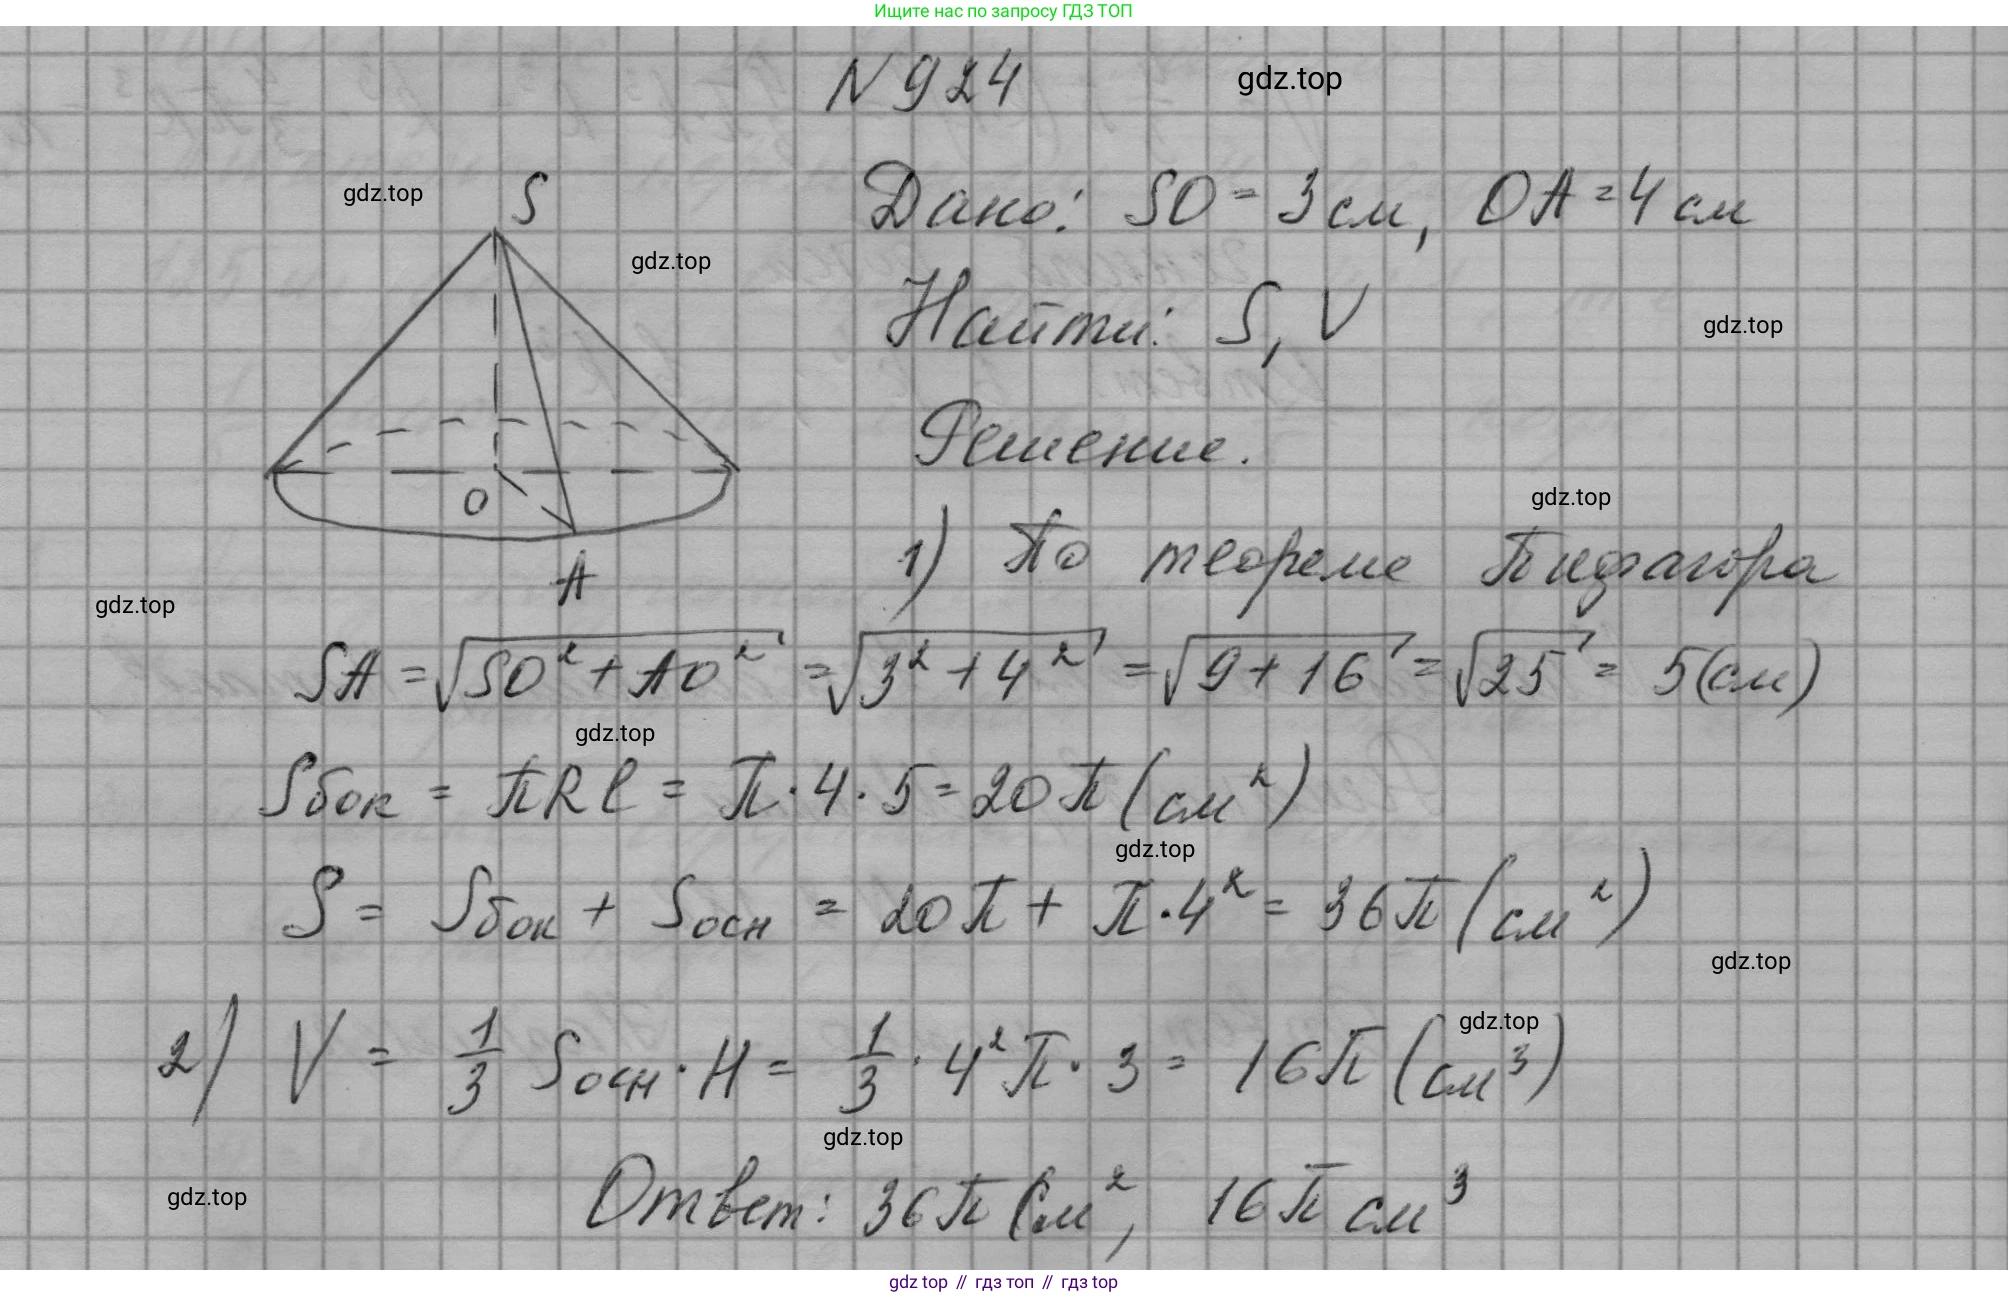 Ищите нас по запросу ГДЗ ТОП
N 924
gdz.top
gdz.top
S
Дано: SO = 3 см, OA = 4 см
gdz.top
Найти: S, V
gdz.top
Решение.
O
gdz.top
1) По теореме Пифагора
A
gdz.top
SA = √SO² + AO² = √3² + 4² = √9 + 16 = √25 = 5 (см)
gdz.top
Sбок = πRl = π · 4 · 5 = 20π (см²)
gdz.top
S = Sбок + Sосн = 20π + π · 4² = 36π (см²)
gdz.top
gdz.top
2) V = 1/3 Sосн · H = 1/3 · 4²π · 3 = 16π (см³)
gdz.top
gdz.top
Ответ: 36π см², 16π см³
gdz top // гдз топ // гдз top